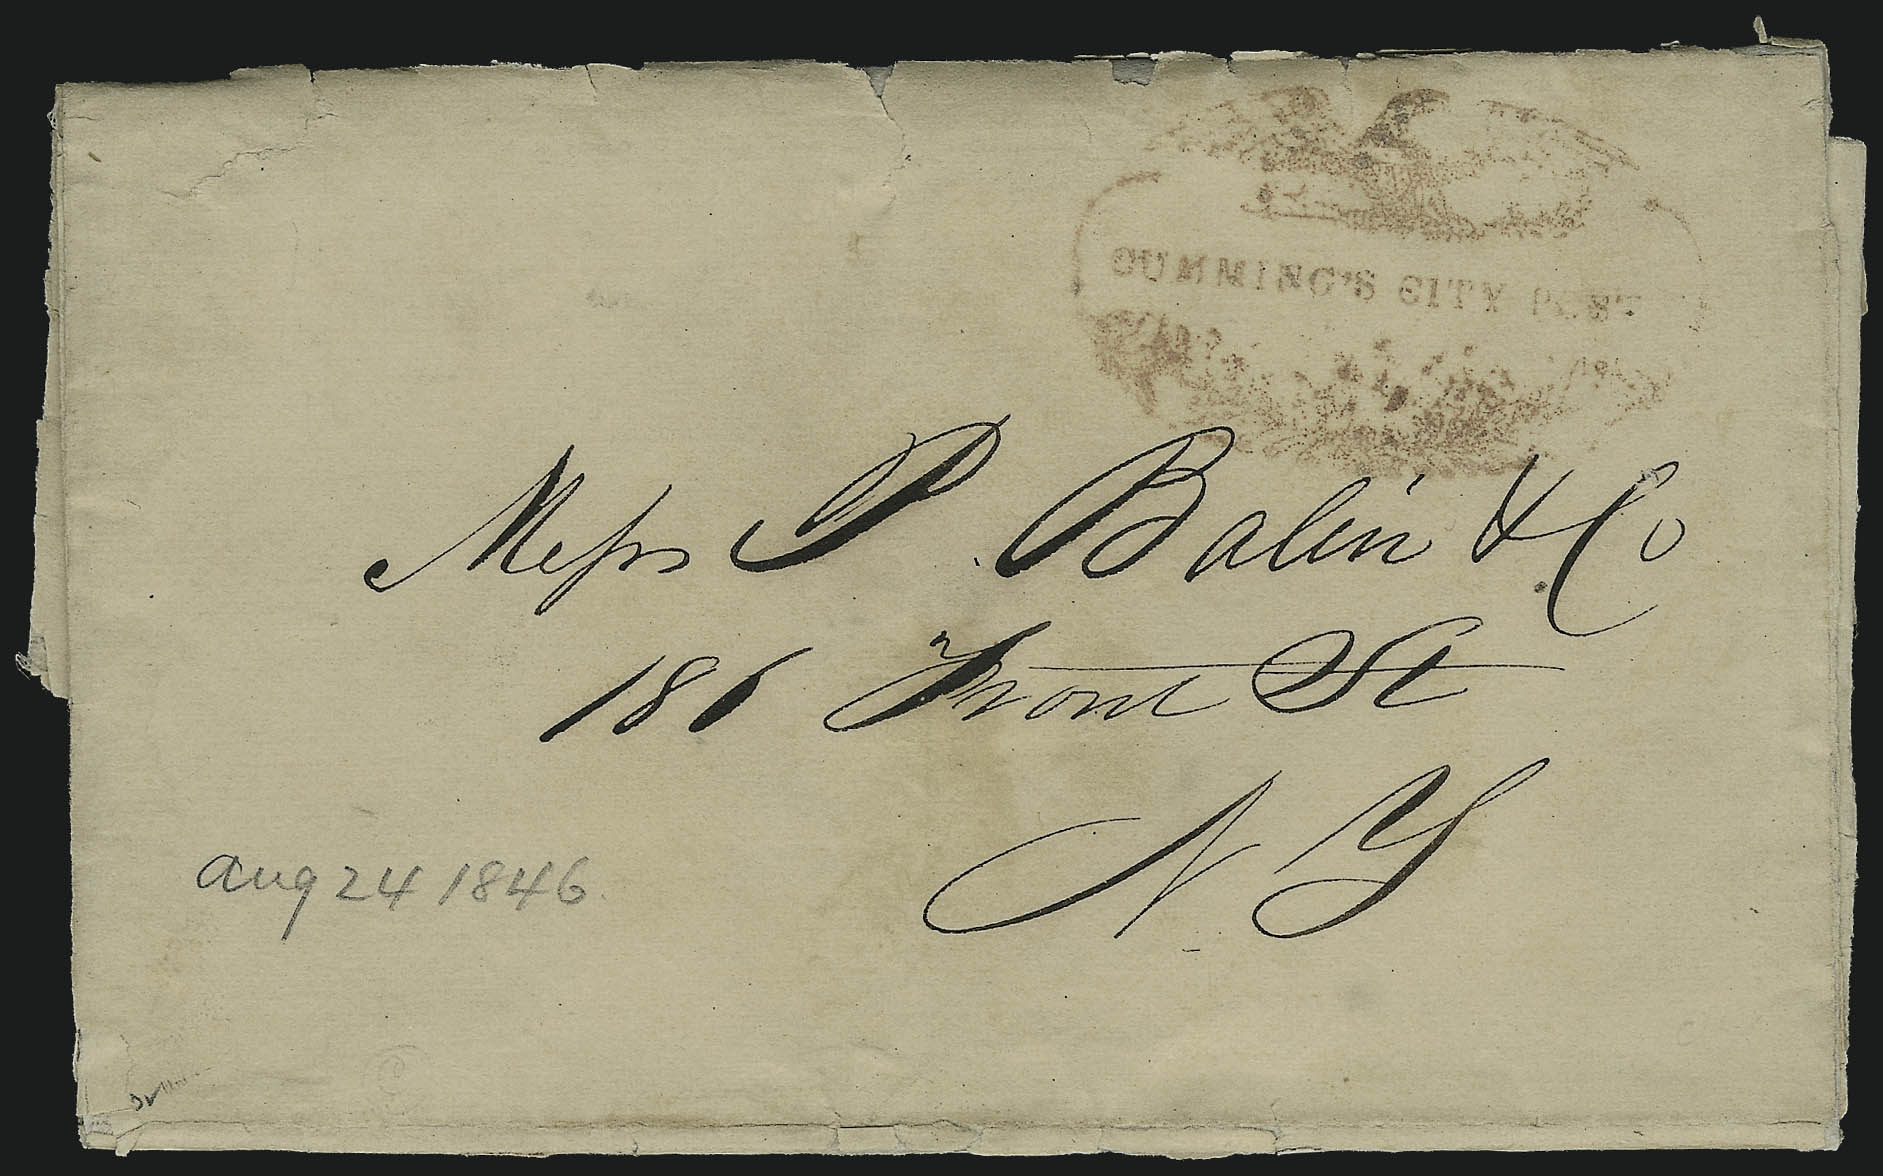 CUMMING'S CITY POST
Messrs P. Balin & Co
186 Front St
N. Y
Aug 24 1846.